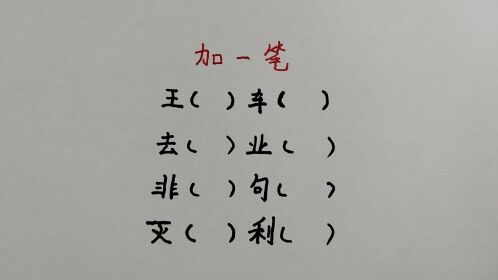 加一笔
王( ) 车( )
去( ) 业( )
非( ) 句( )
灭( ) 利( )